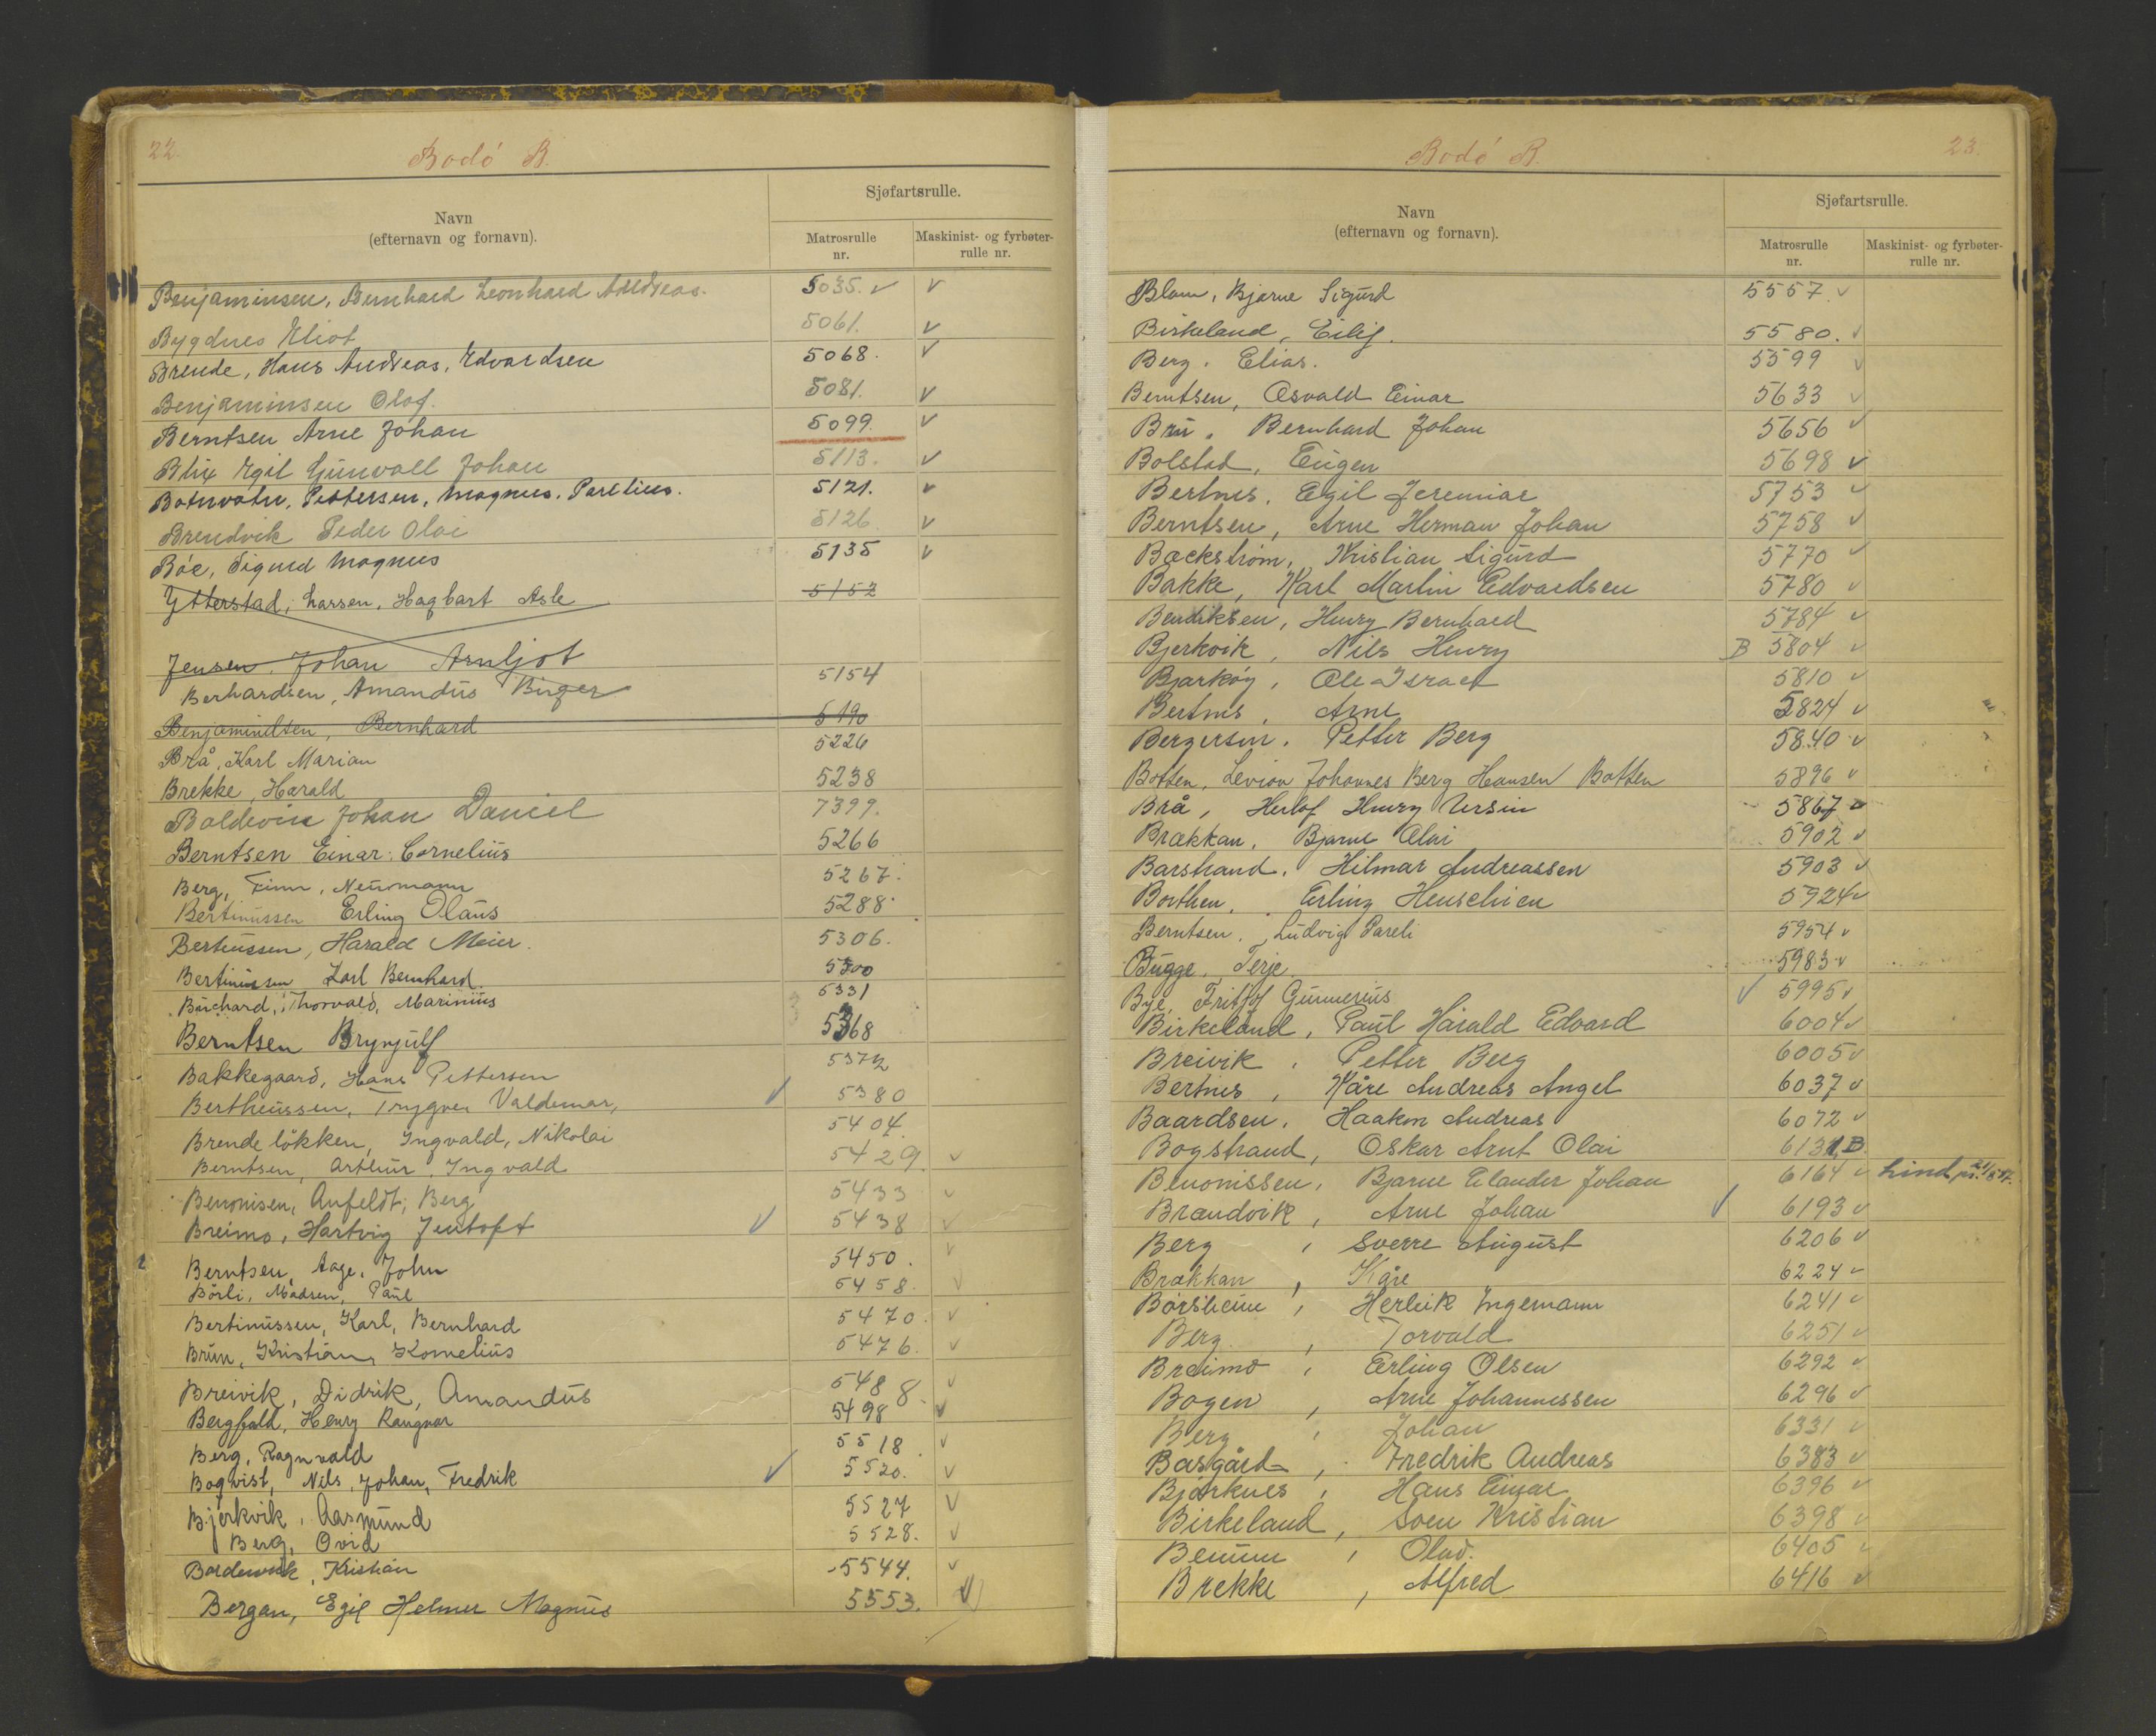 22.
Bodó B.
Sjøfartsrulle.
Navn
(efternavn og fornavn).
Matrosrulle
nr.
Maskinist- og fyrbøter-
rulle nr.
Benjaminsen, Bernhard Leonhard Andreas. 5035. v v
Bygdnes Eliot 5061. v
Brende, Hans Andreas, Edvardsen 5068. v
Benjaminsen Olaf. 5081. v
Berntsen Arne Johan 5099. v
Blix Egil Gunvall Johan 5113. v
Botnvatn, Pettersen, Magnus, Parelius. 5121. v
Brendvik Peder Olai 5126. v
Bóe, Sigurd Magnus 5135 v
Ytterstad, Larsen, Hagbart Asle 5152
Jensen Johan Arnljot
Berhardsen, Amandus Birger 5154
Benjamindsen, Bernhard 5190
Brå, Karl Marian 5226
Brekke, Harald 5238
Baldevin Johan Daniel 7399.
Berntsen Einar Cornelius 5266
Berg, Finn, Neumann 5267.
Bertinussen Erling Olaus 5288.
Berteussen, Harald Meier. 5306.
Bertinussen Karl Bernhard. 5300
Buchard, Thorvald, Marinius 5331
Berntsen Brynjulf 5368
Bakkegaard, Hans Pettersen 5372
Bertheussen, Trygve Valdemar, v 5380
Brendelökken, Ingvald, Nikolai 5404.
Berntsen, Arthur Ingvald 5429. v
Benonisen, Anfeldt, Berg 5433 v
Breimo, Hartvig Jentoft v 5438 v
Berntsen, Aage, John 5450. v
Börli, Madsen, Paul 5458. v
Bertinussen, Karl, Bernhard 5470. v
Brun, Kristian, Kornelius 5476. v
Breivik, Didrik, Amandus 5488. v
Bergfald, Henry Rangnar 5498 v
Berg, Ragnvald 5518. v
Boqvist, Nils, Johan, Fredrik v 5520. v
Bjerkvik, Aasmund 5527 v
Berg, Ovid 5528. v
Bordewick, Kristian 5544. v
Bergan, Egil Helmer Magnus 5553. v
23.
Bodó B.
Sjøfartsrulle.
Navn
(efternavn og fornavn).
Matrosrulle
nr.
Maskinist- og fyrbøter-
rulle nr.
Blom, Bjarne Sigurd 5557. v
Birkeland, Eilif. 5580. v
Berg. Elias. 5599 v
Berntsen, Osvald Einar 5633 v
Bru, Bernhard Johan 5656 v
Bolstad, Eugen 5698 v
Bertnes, Egil Jeremiae 5753 v
Berntsen, Arne Herman Johan 5758 v
Backstrøm, Kristian Sigurd 5770 v
Bakke, Karl Martin Edvardsen 5780 v
Bendiksen, Henry Bernhard 5784 v
Bjerkvik, Nils Henry B 5804 v
Bjarkøy, Ole Israel 5810 v
Bertnes, Arne 5824 v
Bergersen, Petter Berg 5840 v
Botten, Levion Johannes Berg Hansen Botten 5896 v
Brå, Herlof Henry Ursin 5867 v
Brækkan, Bjarne Olai 5902 v
Barstrand, Hilmar Andreassen 5903 v
Borthen, Erling Henschien 5924 v
Berntsen, Ludvig Pareli 5954 v
Bugge, Terje 5983 v
Bye, Fritjof Gunnerius v 5995 v
Birkeland, Paul Harald Edvard 6004 v
Breivik, Petter Berg 6005 v
Bertnes, Kåre Andreas Angel 6037 v
Baardsen, Haakon Andreas 6072 v
Bogstrand, Oskar Arnt Olai 6131 B
Benonissen, Bjarne Elander Johan 6164 v
Brandvik, Arne Johan v 6193 v
Berg, Sverre August 6206 v
Brækkan, Kåre 6224 v
Børsheim, Herleik Ingemann 6241 v
Berg, Torvald 6251 v
Breimo, Erling Olsen 6292 v
Bogen, Arne Johannessen 6296 v
Berg, Johan 6331 v
Basgård, Fredrik Andreas 6383 v
Bjørknes, Hans Einar 6396 v
Birkeland, Svein Kristian 6398 v
Benum, Olav. 6405 v
Brekke, Alfred 6416 v